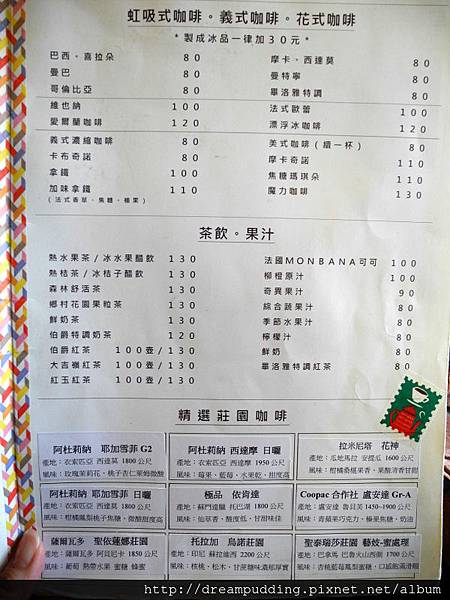 虹吸式咖啡。義式咖啡。花式咖啡
*製成冰品一律加30元*
巴西、喜拉朵 80
曼巴 80
哥倫比亞 80
維也納 100
愛爾蘭咖啡 120
義式濃縮咖啡 80
卡布奇諾 80
拿鐵 100
加味拿鐵 110
(法式香草、焦糖、榛果)
摩卡、西達莫 80
曼特寧 80
畢洛雅特調 80
法式歐蕾 100
漂浮冰咖啡 120
美式咖啡(續一杯) 80
摩卡奇諾 110
焦糖瑪琪朵 110
魔力咖啡 130
茶飲。果汁
熱水果茶/冰水果醋飲 130
熱桔茶/冰桔子醋飲 130
森林舒活茶 130
鄉村花園果粒茶 130
鮮奶茶 130
伯爵特調奶茶 120
伯爵紅茶 100壺/130
大吉嶺紅茶 100壺/130
紅玉紅茶 100壺/130
法國MONBANA可可 100
柳橙原汁 100
奇異果汁 90
綜合蔬果汁 80
季節水果汁 80
檸檬汁 80
鮮奶 80
畢洛雅特調紅茶 80
精選莊園咖啡
阿杜莉納 耶加雪菲 G2
產地:衣索匹亞 西達莫 1800公尺
風味:玫瑰茉莉花、桃子杏仁萊姆微酸
阿杜莉納 西達摩 日曬
產地:衣索匹亞 西達莫 1950公尺
風味:莓果、藍莓、水果乾、甜度高
拉米尼塔 花神
產地:瓜地馬拉 安提瓜 1600公尺
風味:柑橘桑椹果香、果酸清香甘甜
阿杜莉納 耶加雪菲 日曬
產地:衣索匹亞 西達莫 1800公尺
風味:柑橘鳳梨桃子焦糖、微酸甜度高
極品 依肯達
產地:蘇門達臘 托巴湖 1600公尺
風味:仙草香、酸度低、甘甜味佳
Coopac 合作社 盧安達 Gr-A
產地:盧安達 魯貝芙 1450~1900公尺
風味:青蘋果巧克力、榛果焦糖、奶油
薩爾瓦多 聖依蓮娜莊園
產地:薩爾瓦多 阿貝尼卡 1850公尺
風味:葡萄 熱帶水果 蜜糖 蜂蜜
托拉加 烏諾莊園
產地:印尼 蘇拉維西 2200公尺
風味:核桃、松木、甘蔗糖味濃郁厚實
聖泰瑞莎莊園 藝妓-蜜處理
產地:巴拿馬 巴魯火山西側 1700公尺
風味:杏桃藍莓鳳梨蜜糖、口感飽滿滑順
http://dreampudding.pixnet.net/album